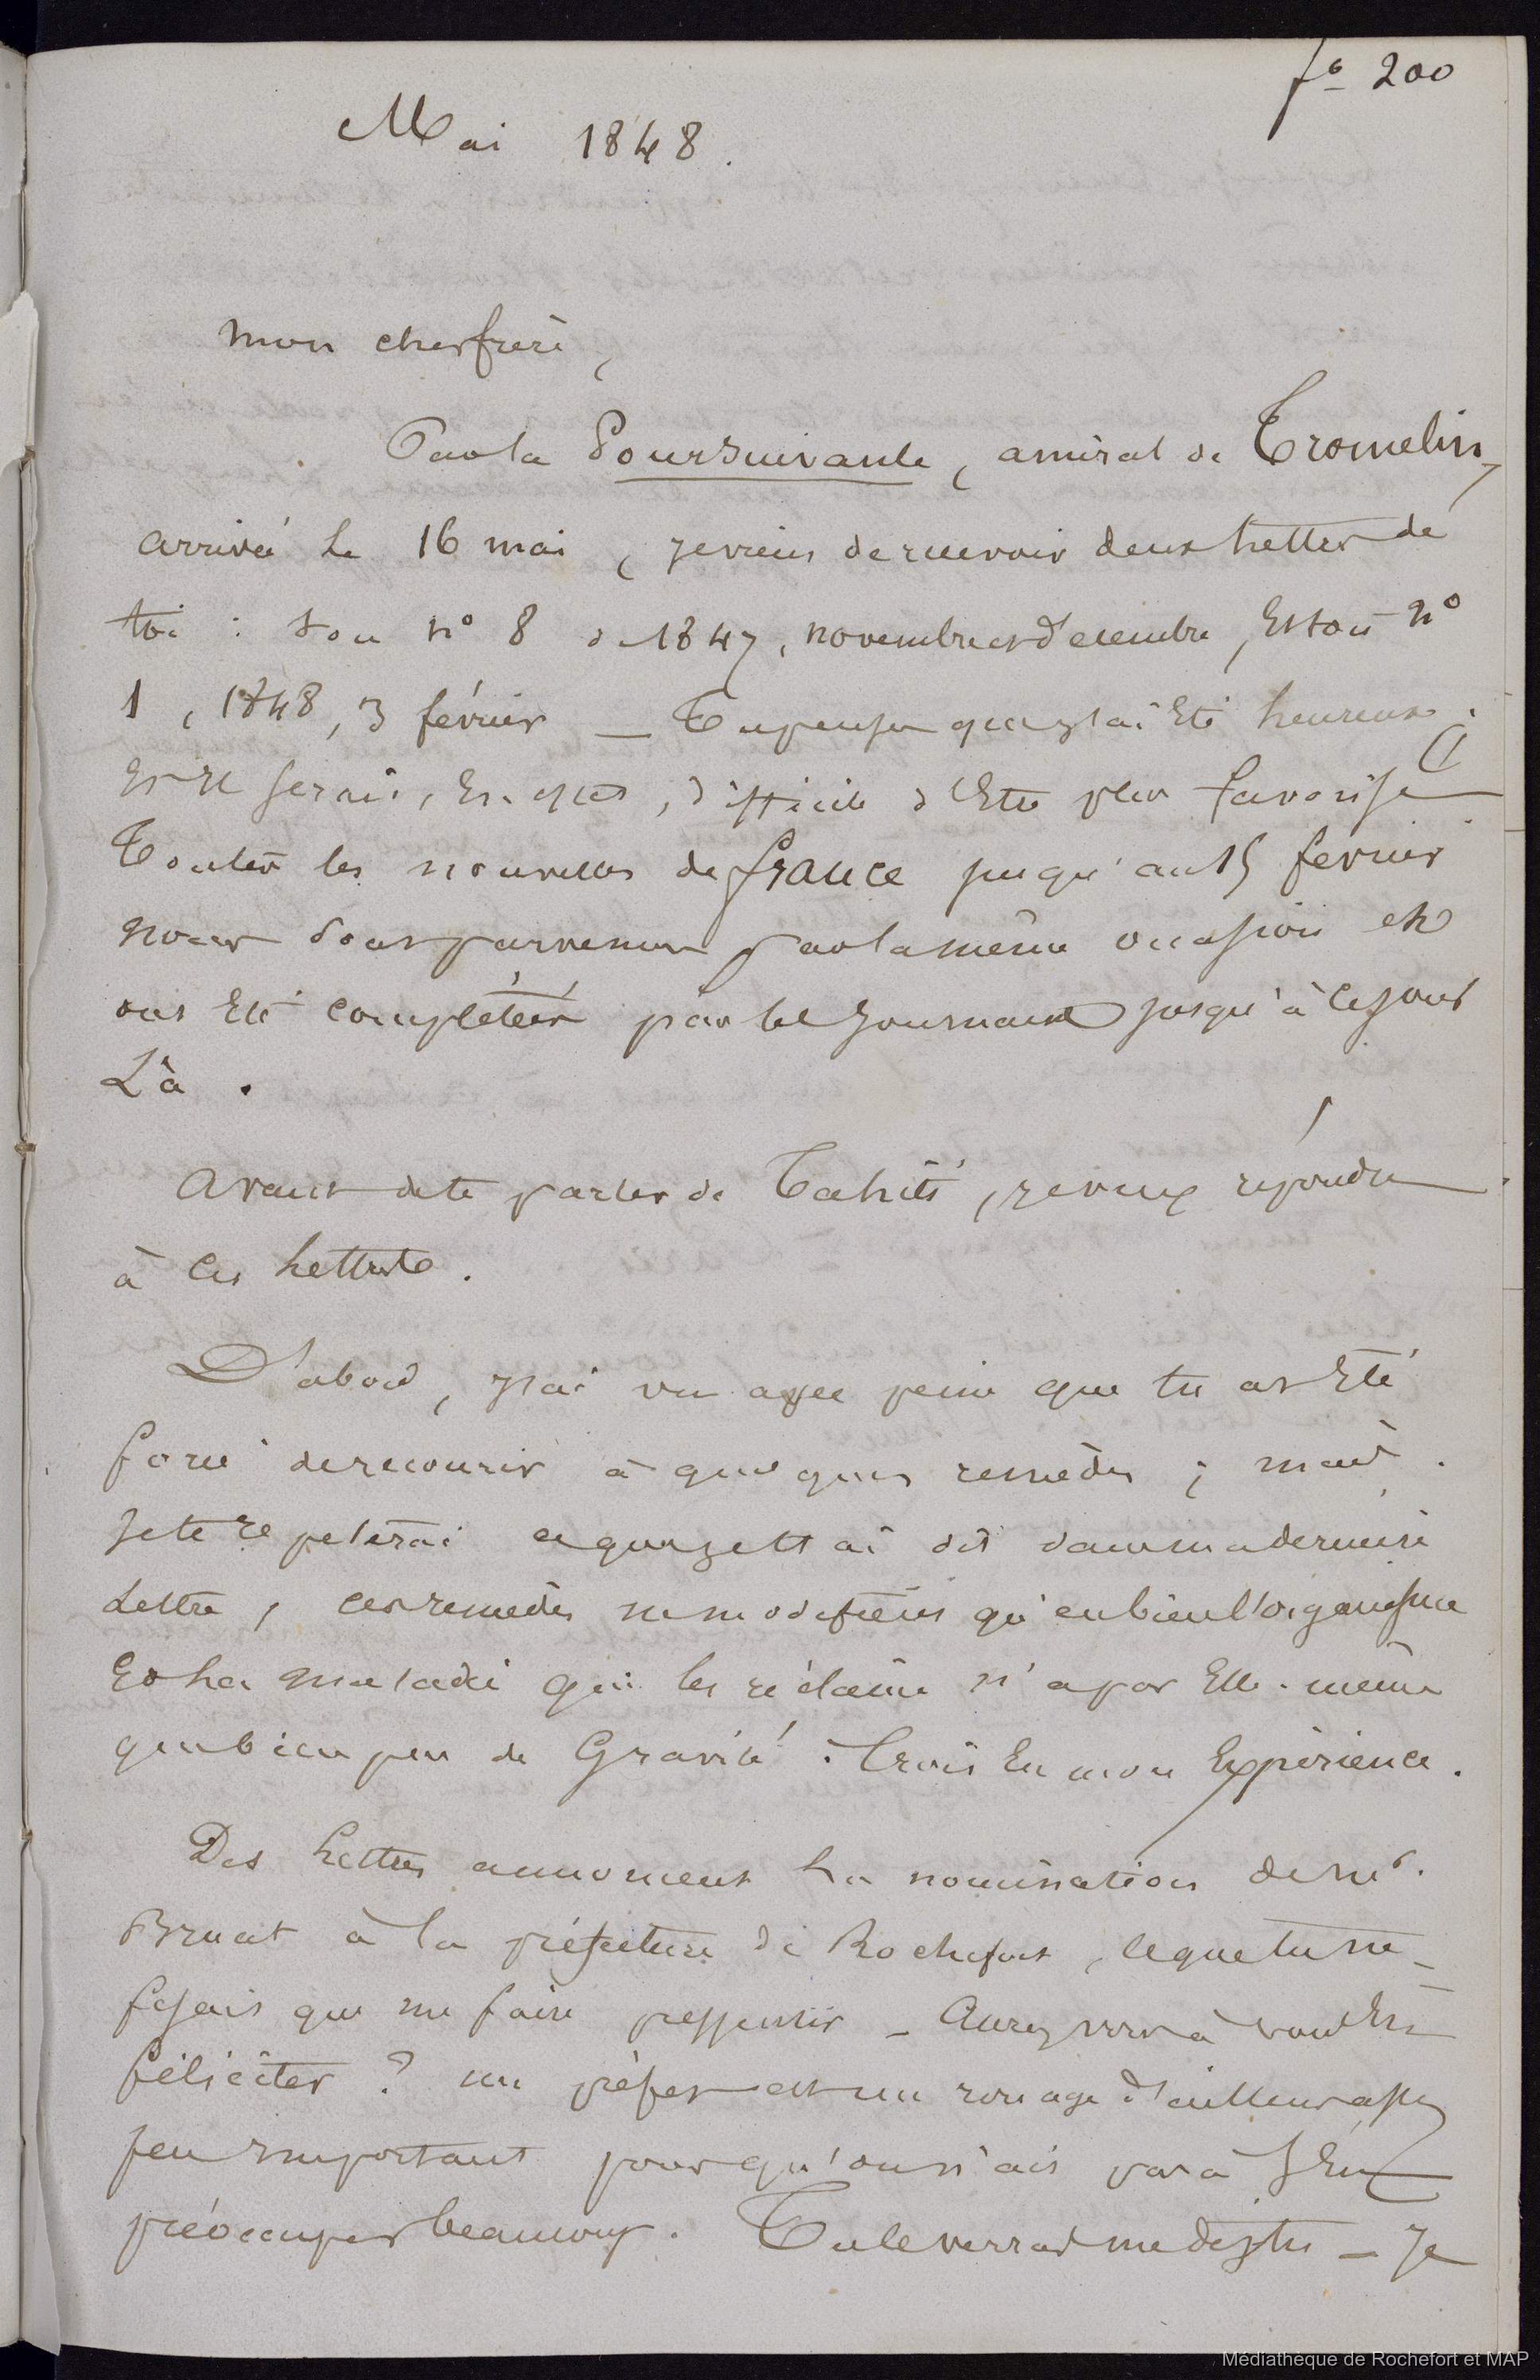 fo 200
Mai 1848.
Mon cher frère,
Par la Poursuivante, amiral de Tromelin,
arrivée le 16 mai, je viens de recevoir deux lettres de
toi : ton n° 8 de 1847, novembre et décembre, et ton n°
1, 1848, 3 février — Tu penses que j'ai été heureux.
Et il serait, en effet, difficile d'être plus favorisé
Toutes les nouvelles de france jusqu'au 15 février
nous sont parvenues par la même occasion et
ont été complétées par les journaux jusqu'à ce jour
Là.
Avant de te parler de Tahiti, je veux répondre
à ces lettres.
D'abord, j'ai vu avec peine que tu as été
forcé de recourir à quelques remèdes ; mais
je te répèterai ce que je t'ai dit dans ma dernière
Lettre, ces remèdes ne modifient qu'en bien l'organisme
Et la maladie qui les réclame n'a par elle-même
que bien peu de Gravité. Crois en mon Expérience.
Des lettres annoncent la nomination de Mr.
Bruat à la préfecture de Rochefort, ce que tu ne
fesais que me faire pressentir — Aurez vous à vous en
féliciter ? un préfet est un rouage d'ailleurs assez
peu important pour qu'on n'ait pas à s'en
préoccuper beaucoup. Tu le verras me dis-tu — Je
Médiathèque de Rochefort et MAP